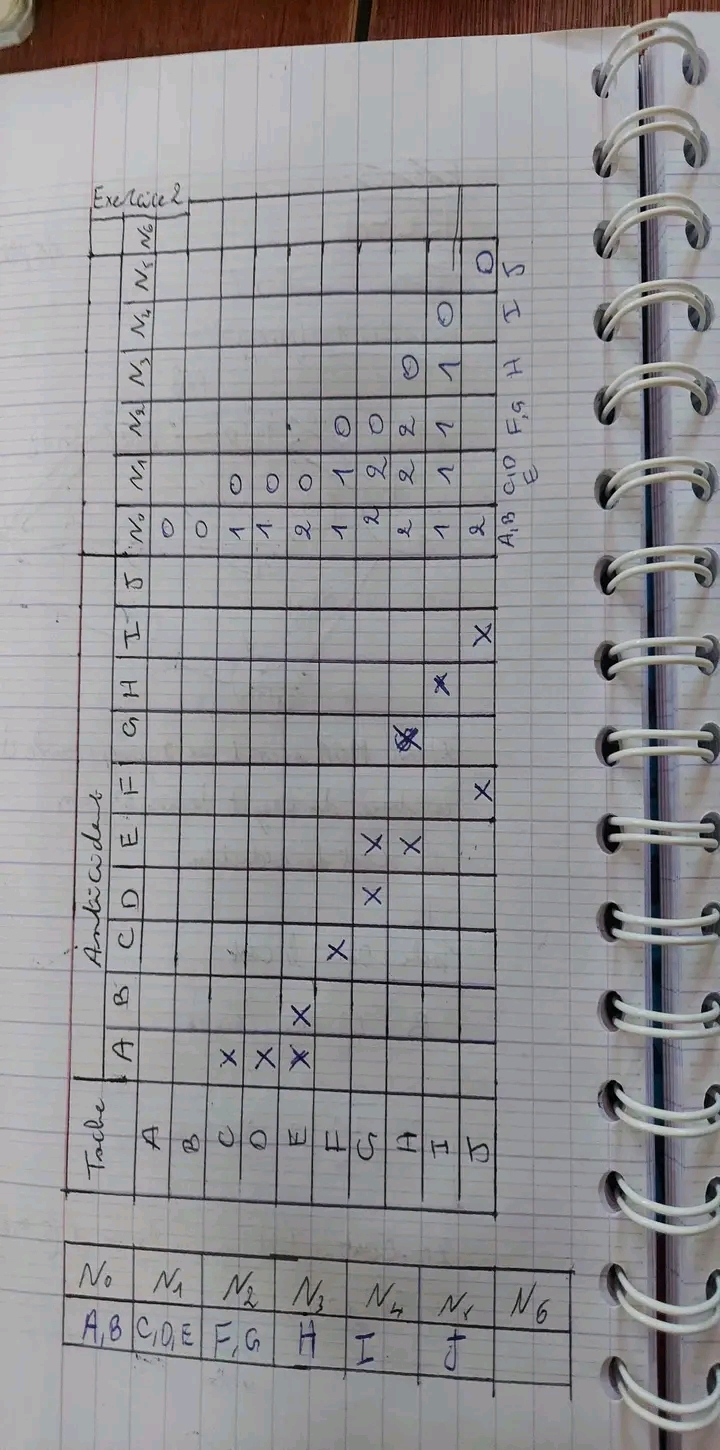 Exercice 2
Tache Antécidents
A B C D E F G H I J N0 N1 N2 N3 N4 N5 N6
A 0
B 0
C X 1 0
D X 1 0
E X X 2 0
F X 1 1 0
G X X 2 2 0
H X X 2 2 2 0
I X 1 1 1 1 0
J X X 2 0
A,B C,D F,G H I J
E
N0 N1 N2 N3 N4 N5 N6
A,B C,D,E F,G H I J